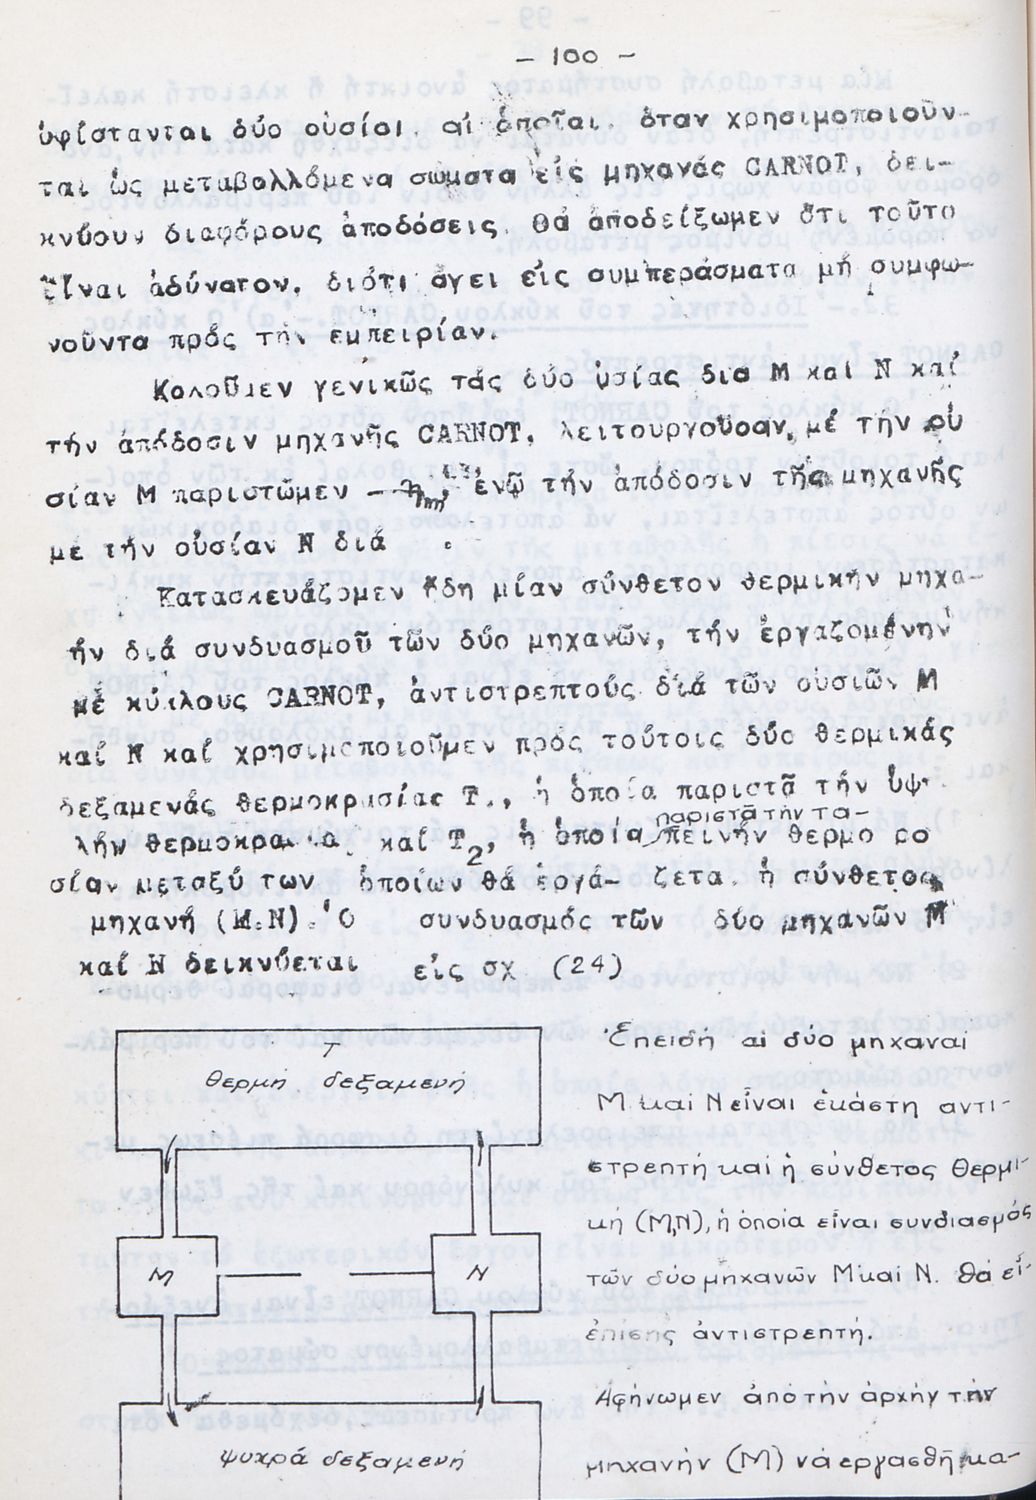 - 100 -
ὑφίστανται δύο οὐσίαι, αἱ ὁποῖαι, ὅταν χρησιμοποιοῦν-
ται ὡς μεταβαλλόμενα σώματα εἰς μηχανάς CARNOT, δει-
κνύουν διαφόρους ἀποδόσεις. Θά ἀποδείξωμεν ὅτι τοῦτο
εἶναι ἀδύνατον, διότι ἄγει εἰς συμπεράσματα μή συμφω-
νοῦντα πρός τήν ἐμπειρίαν.
Καλοῦμεν γενικῶς τάς δύο οὐσίας δια M καί N καί
τήν ἀπόδοσιν μηχανῆς CARNOT, λειτουργοῦσαν, μέ τήν οὐ
σίαν M παριστῶμεν — ηm, ἐνῷ τήν ἀπόδοσιν τῆς μηχανῆς
μέ τήν οὐσίαν N διά
Κατασκευάζομεν ἤδη μίαν σύνθετον θερμικήν μηχα-
ήν διά συνδυασμοῦ τῶν δύο μηχανῶν, τήν ἐργαζομένην
μέ κύκλους CARNOT, ἀντιστρεπτούς διά τῶν οὐσιῶν M
καί N καί χρησιμοποιοῦμεν πρός τούτοις δύο θερμικάς
δεξαμενάς θερμοκρασίας T., ἡ ὁποία παριστᾷ τήν ὑψ
παριστᾷ τὴν τα-
λήν θερμοκρασία καί T2, ἡ ὁποία πεινήν θερμο ρα
σίαν μεταξύ των ὁποίων θά ἐργά- ζεται ἡ σύνθετος
μηχανή (M.N). Ὁ συνδυασμός τῶν δύο μηχανῶν M
καί N δεικνύεται εἰς σχ (24)
T
θερμή δεξαμενή
M
N
ψυχρά δεξαμενή
Ἐπειδή αἱ δύο μηχαναί
M καί N εἶναι ἑκάστη αντι-
στρεπτή καί ἡ σύνθετος θερμι-
κή (M,N), ἡ ὁποία εἶναι συνδιασμός
τῶν δύο μηχανῶν M καί N. θά εἶ-
ἐπίσης ἀντιστρεπτή.
Αφήνωμεν ἀπό τήν ἀρχήν τήν
μηχανήν (M) νά εργασθῆ μα-